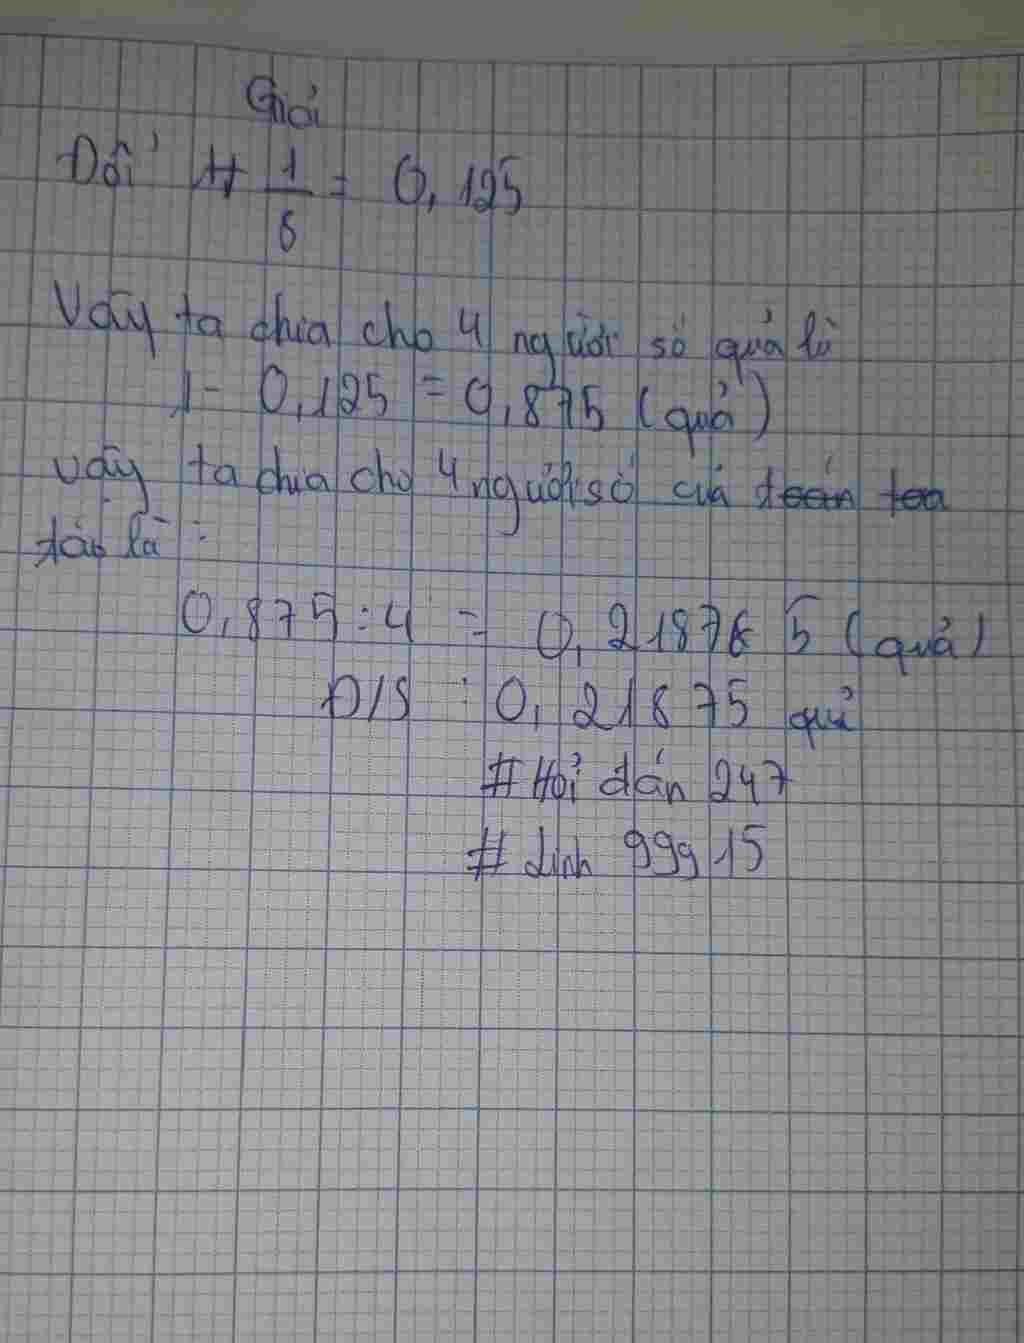 Giải
Đổi 1/8 = 0,125
Vậy ta chia cho 4 người số quả là
1 - 0,125 = 0,875 (quả)
Vậy ta chia cho 4 người số của
táo là :
0,875 : 4 = 0,21875 (quả)
Đ/S : 0,21875 quả
# Hỏi đán 247
# Linh 999 15